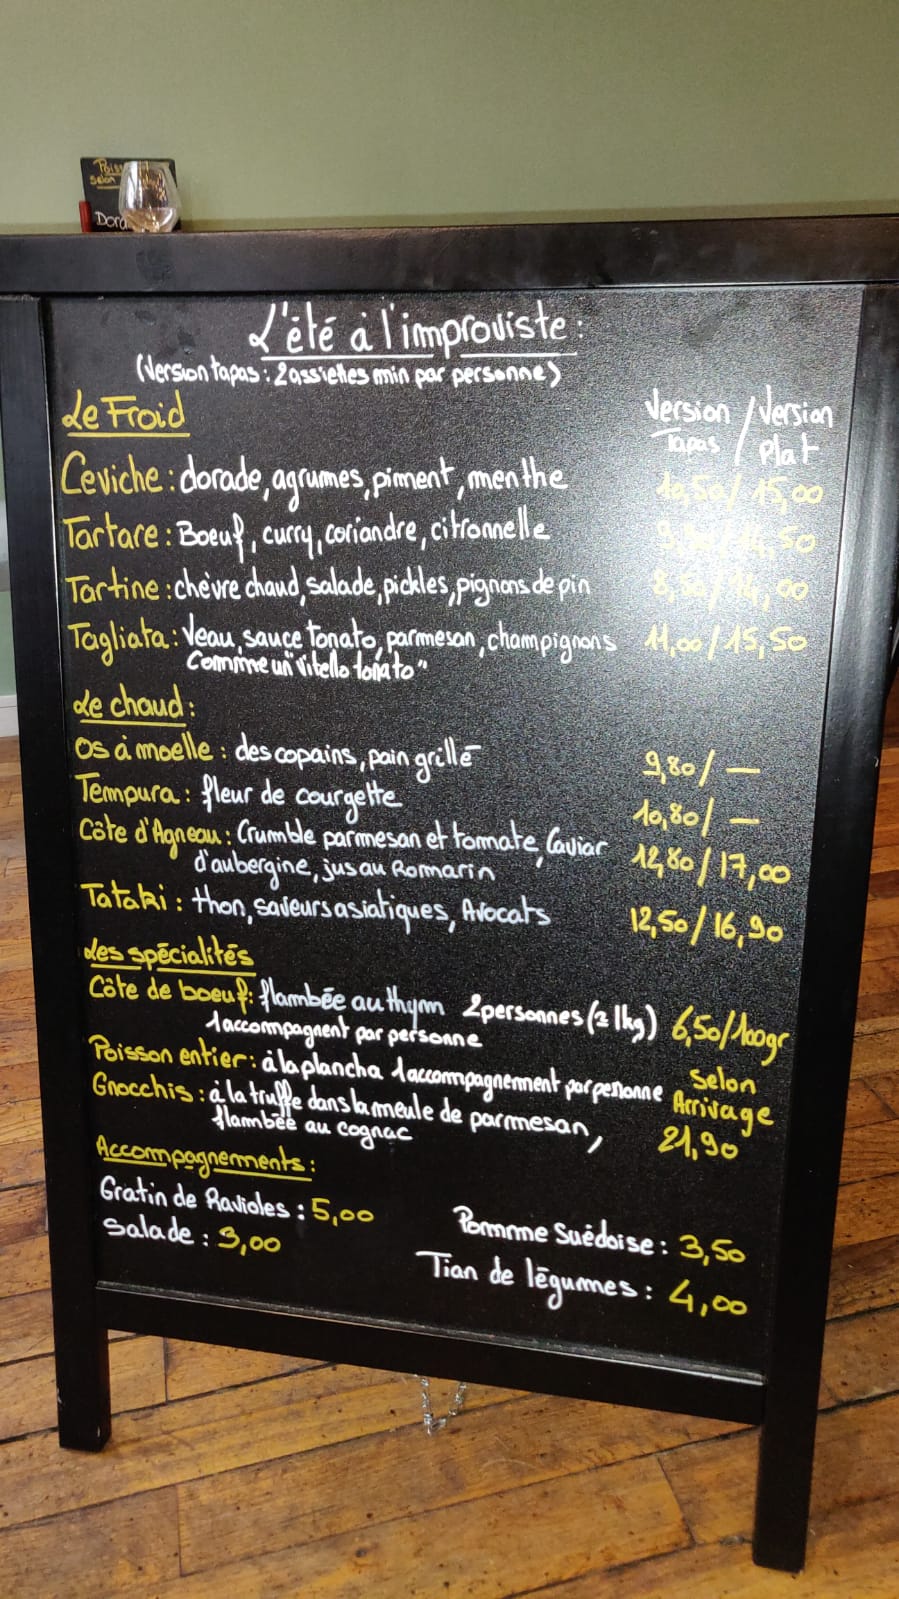 Poiss
selon
Dora
L'été à l'improviste :
(Version tapas : 2 assiettes min par personne)
Le Froid
Version Tapas / Version Plat
Ceviche : dorade, agrumes, piment, menthe 10,50 / 15,00
Tartare : Boeuf, curry, coriandre, citronnelle 14,50
Tartine : chèvre chaud, salade, pickles, pignons de pin 8,50 / 14,00
Tagliata : Veau, sauce tonato, parmesan, champignons 11,00 / 15,50
Comme un "vitello tonato"
Le chaud :
Os à moelle : des copains, pain grillé 9,80 / —
Tempura : fleur de courgette 10,80 / —
Côte d'Agneau : Crumble parmesan et tomate, Caviar 12,80 / 17,00
d'aubergine, jus au Romarin
Tataki : thon, saveurs asiatiques, Avocats 12,50 / 16,90
Les spécialités
Côte de boeuf : flambée au thym 2 personnes (± 1kg) 6,50/100gr
1 accompagnent par personne
Poisson entier : à la plancha 1 accompagnement par personne Selon Arrivage
Gnocchis : à la truffe dans la meule de parmesan, 21,90
flambée au cognac
Accompagnements :
Gratin de Ravioles : 5,00
Salade : 3,00
Pomme Suédoise : 3,50
Tian de légumes : 4,00